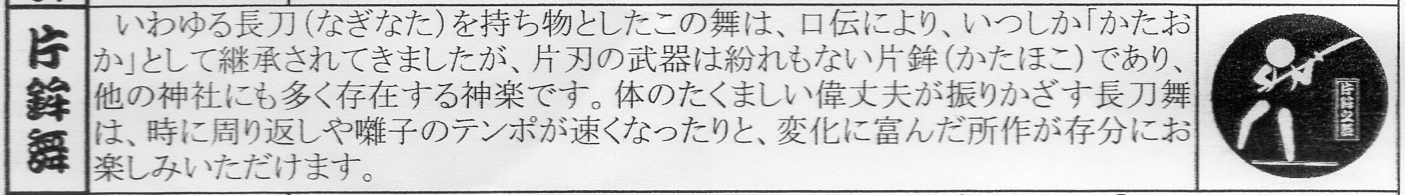 片鉾舞
いわゆる長刀(なぎなた)を持ち物としたこの舞は、口伝により、いつしか「かたお
か」として継承されてきましたが、片刃の武器は紛れもない片鉾(かたほこ)であり、
他の神社にも多く存在する神楽です。体のたくましい偉丈夫が振りかざす長刀舞
は、時に周り返しや囃子のテンポが速くなったりと、変化に富んだ所作が存分にお
楽しみいただけます。
片鉾之舞